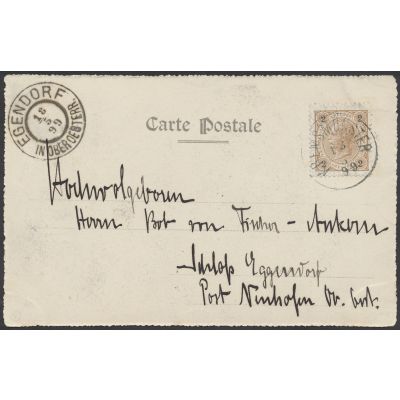 EGENDORF
18
5
99
IN OBER OESTERR.
Carte Postale
2 2
2 2
99
Hochwolgeboren
Herrn Bot von Fischer-Ankern
Schloss Eggendorf
Post Neuhofen Ob. öst.